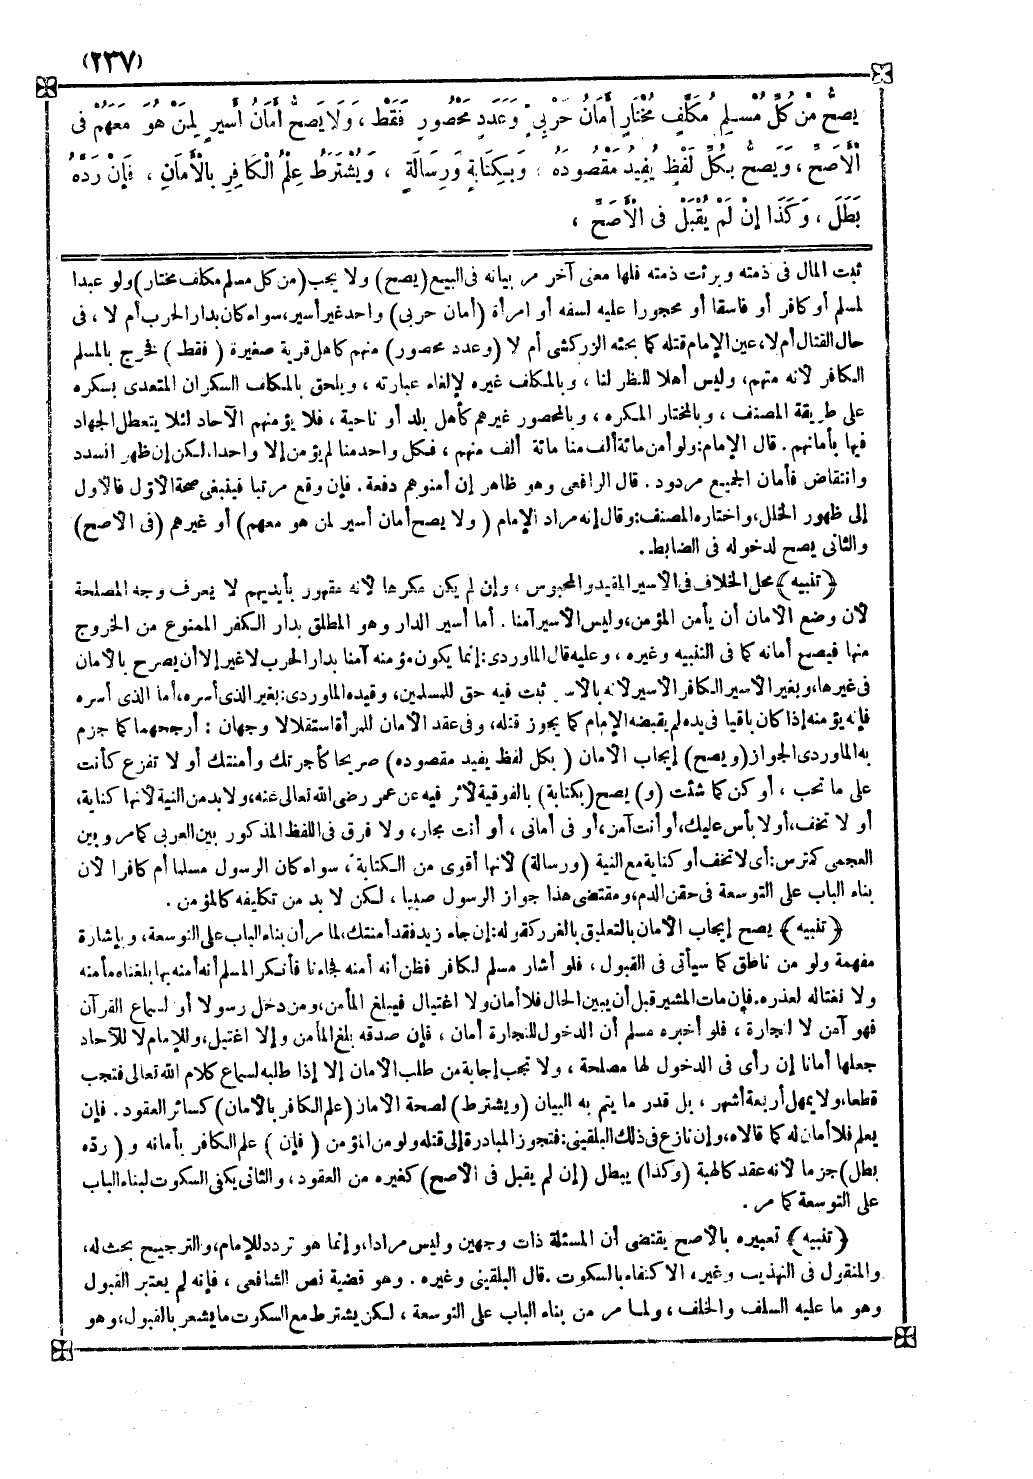 (٢٣٧)
يَصِحُّ مِنْ كُلِّ مُسْلِمٍ مُكَلَّفٍ مُخْتَارٍ أَمَانُ حَرْبِيٍّ وَعَدَدٍ مَحْصُورٍ فَقَطْ ، وَلَا يَصِحُّ أَمَانُ أَسِيرٍ لِمَنْ هُوَ مَعَهُمْ فِى
الْأَصَحِّ ، وَيَصِحُّ بِكُلِّ لَفْظٍ يُفِيدُ مَقْصُودَهُ ؛ وَبِكِتَابَةٍ وَرِسَالَةٍ ، وَيُشْتَرَطُ عِلْمُ الْكَافِرِ بِالْأَمَانِ ، فَإِنْ رَدَّهُ
بَطَلَ ، وَكَذَا إِنْ لَمْ يُقْبَلْ فِى الْأَصَحِّ ،
ثبت المال فى ذمته وبرئت ذمته فلها معنى آخر مر بيانه فى البيع (يصح) ولا يجب (من كل مسلم مكلف مختار) ولو عبدا
لمسلم أو كافر أو فاسقا أو محجورا عليه لسفه أو امرأة (أمان حربى) واحد غير أسير، سواء كان بدار الحرب أم لا ، فى
حال القتال أم لا، عين الإمام قتله كما بحثه الزركشى أم لا (وعدد محصور) منهم كأهل قرية صغيرة ( فقط ) فخرج بالمسلم
الكافر لأنه متهم، وليس أهلا للنظر لنا ، وبالمكلف غيره لإلغاء عبارته ، ويلحق بالمكلف السكران المتعدى بسكره
على طريقة المصنف ، وبالمختار المكره ، وبالمحصور غيرهم كأهل بلد أو ناحية ، فلا يؤمنهم الآحاد لئلا يتعطل الجهاد
فيها بأمانهم . قال الإمام: ولو أمن مائة ألف منا مائة ألف منهم ، فكل واحد منا لم يؤمن إلا واحدا. لكن إن ظهر انسدد
وانتقاض فأمان الجميع مردود . قال الرافعى وهو ظاهر إن أمنوهم دفعة . فإن وقع مرتبا فينبغى صحة الأول فالأول
إلى ظهور الخلل، واختاره المصنف: وقال إنه مراد الإمام ( ولا يصح أمان أسير لمن هو معهم) أو غيرهم (فى الأصح)
والثانى يصح لدخوله فى الضابط .
﴿تنبيه﴾ محل الخلاف فى الأسير المقيد والمحبوس ، وإن لم يكن مكرها لأنه مقهور بأيديهم لا يعرف وجه المصلحة
لأن وضع الأمان أن يأمن المؤمن، وليس الأسير آمنا . أما أسير الدار وهو المطلق بدار الكفر الممنوع من الخروج
منها فيصح أمانه كما فى التنبيه وغيره ، وعليه قال الماوردى: إنما يكون مؤمنه آمنا بدار الحرب لا غير إلا أن يصرح بالأمان
فى غيرها، وبغير الأسير الكافر الأسير لأنه بالأسر ثبت فيه حق للمسلمين، وقيده الماوردى: بغير الذى أسره، أما الذى أسره
فإنه يؤمنه إذا كان باقيا فى يده لم يقبضه الإمام كما يجوز قتله، وفى عقد الأمان للمرأة استقلالا وجهان : أرجحهما كما جزم
به الماوردى الجواز (ويصح) إيجاب الأمان ( بكل لفظ يفيد مقصوده) صريحا كأجرتك وأمنتك أو لا تفزع كأنت
على ما تحب ، أو كن كما شئت (و) يصح (بكتابة) بالفوقية لأثر فيه عن عمر رضى الله تعالى عنه، ولا بد من النية لأنها كناية،
أو لا تخف، أو لا بأس عليك، أو أنت آمن، أو فى أمانى ، أو أنت مجار، ولا فرق فى اللفظ المذكور بين العربى كما مر وبين
العجمى كمترس: أى لا تخف أو كناية مع النية (ورسالة) لأنها أقوى من الكتابة ، سواء كان الرسول مسلما أم كافرا لأن
بناء الباب على التوسعة فى حقن الدم، ومقتضى هذا جواز الرسول صبيا ، لكن لا بد من تكليفه كالمؤمن .
﴿تنبيه﴾ يصح إيجاب الأمان بالتعليق بالغرر كقوله: إن جاء زيد فقد أمنتك، لما مر أن بناء الباب على التوسعة، وبإشارة
مفهمة ولو من ناطق كما سيأتى فى القبول ، فلو أشار مسلم لكافر فظن أنه أمنه فجاءنا فأنكر المسلم أنه أمنه بها بلغناه مأمنه
ولا نغتاله لعذره. فإن مات المشير قبل أن يبين الحال فلا أمان ولا اغتيال فيبلغ المأمن، ومن دخل رسولا أو لسماع القرآن
فهو آمن لا لتجارة ، فلو أخبره مسلم أن الدخول للتجارة أمان ، فإن صدقه بلغ المأمن وإلا اغتيل، وللإمام لا للآحاد
جعلها أمانا إن رأى فى الدخول لها مصلحة ، ولا تجب إجابة من طلب الأمان إلا إذا طلبه لسماع كلام الله تعالى فتجب
قطعا، ولا يمهل أربعة أشهر ، بل قدر ما يتم به البيان (ويشترط) لصحة الأمان (علم الكافر بالأمان) كسائر العقود . فإن
يعلم فلا أمان له كما قالاه، وإن نازع فى ذلك البلقينى: فتجوز المبادرة إلى قتله ولو من المؤمن ( فإن ) علم الكافر بأمانه و ( رده
بطل) جزما لأنه عقد كالهبة (وكذا) يبطل (إن لم يقبل فى الأصح) كغيره من العقود ، والثانى يكفى السكوت لبناء الباب
على التوسعة كما مر .
﴿تنبيه﴾ تعبيره بالأصح يقتضى أن المسئلة ذات وجهين وليس مرادا، وإنما هو تردد للإمام، والترجيح بحث له،
والمنقول فى التهذيب وغيره الاكتفاء بالسكوت . قال البلقينى وغيره . وهو قضية نص الشافعى ، فإنه لم يعتبر القبول
وهو ما عليه السلف والخلف ، ولما مر من بناء الباب على التوسعة ، لكن يشترط مع السكوت ما يشعر بالقبول، وهو